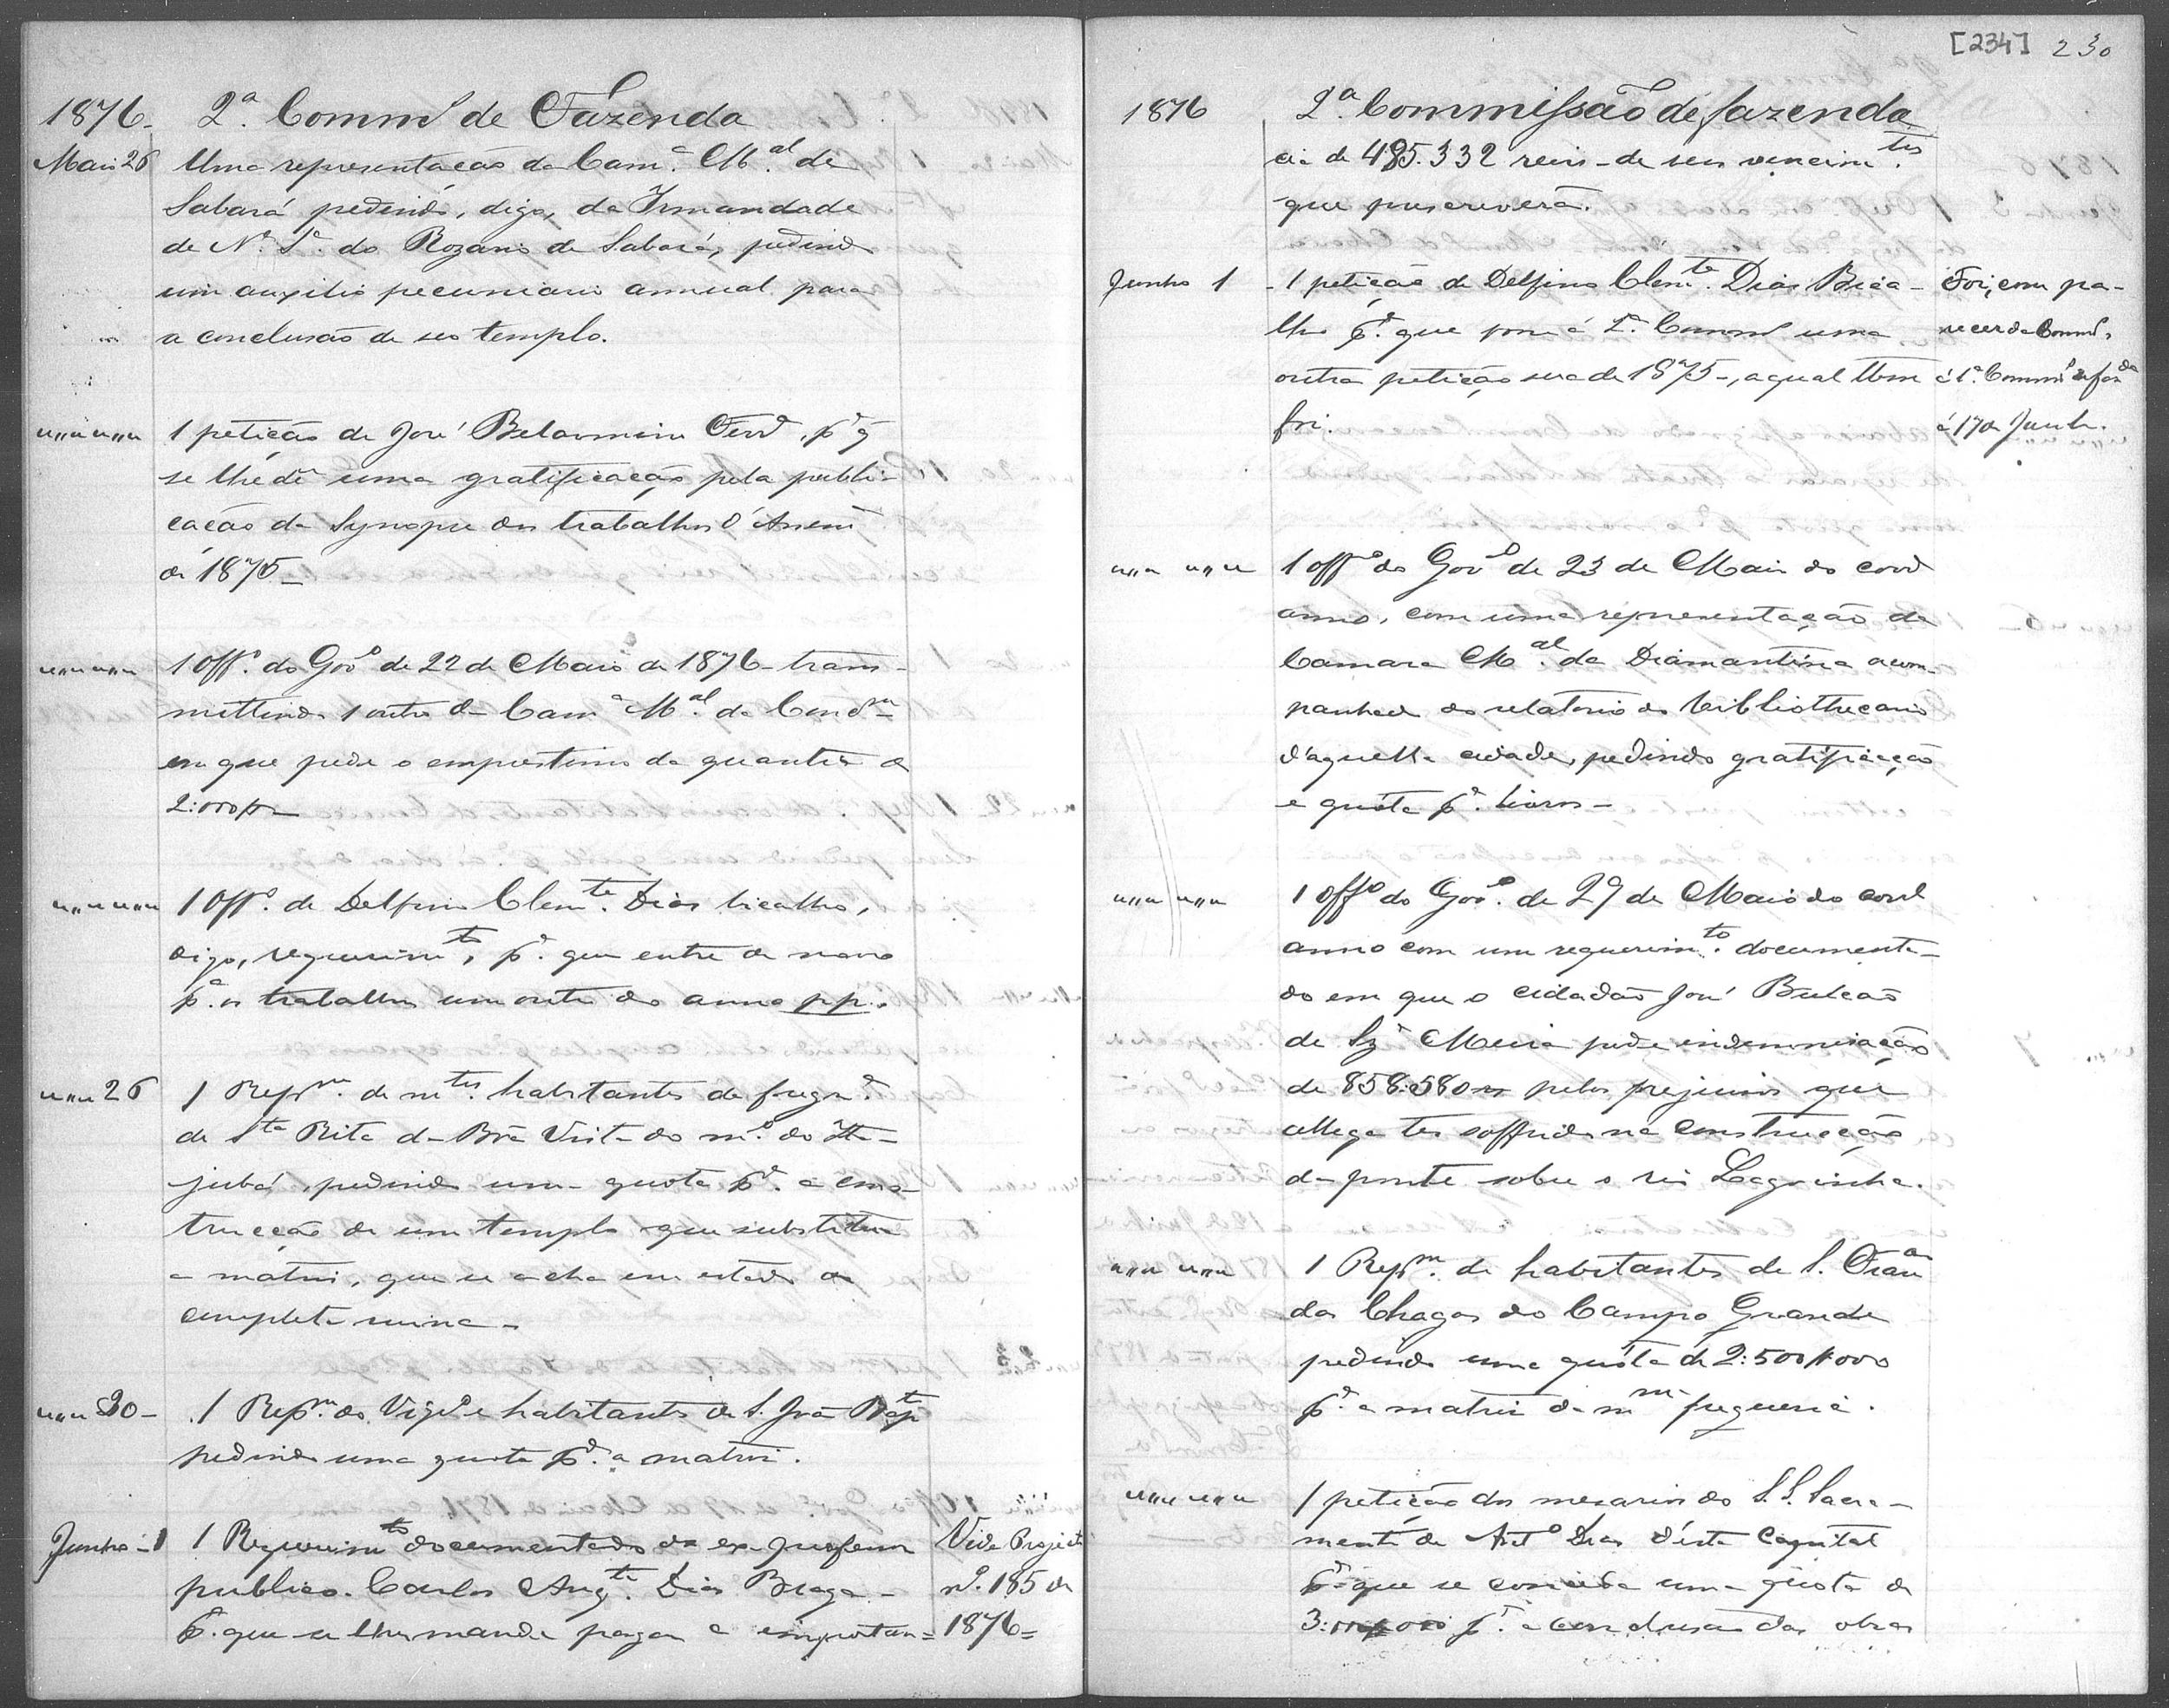 1876 2ª Commm de Fazenda
Maio 26 Uma representação da Camª Mal de
Sabará pedindo, digo, da Irmandade
de Nª Sª do Rozario de Sabará, pedindo
um auxilio pecuniario annual para
a conclusão de seo templo.
" " " " 1 petição de José Belarmino Ferrª, pª q̃
se lhe dê uma gratificação pela publi-
cação da Synopse dos trabalhos d'Assem
de 1875-
" " " " 1 Offº. do Govº de 22 de Maio de 1876 - trans-
mittindo 1 outro da Camª Mal da Concm
em que pede o emprestimo da quantia de
2:000$-
" " " " 1 Offº. de Delfino Clemte Dias bicalho,
digo, requerimto, pª. que entre de novo
pª. os trabalhos um outro do anno pp.
" " 26 1 Repm. de mtos. habitantes da fregª.
de Sta Rita da Bôa Vista do mº. do Ita-
jubá, pedindo uma quota pª. a cons-
trucção de um templo que substitua
a matriz, que se acha em estado de
completa ruina -
" " 30 - 1 Repm. do Vigrº e habitantes de S. João Bapta
pedindo uma quota pª. a matriz.
Junho - 1 1 Requerimto documentado do ex professor
publico Carlos Augto. Dias Braga -
pª. que se lhe mande pagar a importan=
Vide Projecto
nº. 185 de
1876=
[234] 230
1876 2ª Commissão de fazenda
cia de 485.332 reis - de seus vencimtos.
que prescreverã.
Junho 1 - 1 petição de Delfino Clemte. Dias Bica-
lho pª. que torne á 2ª. Commm uma
outra petição sua de 1875-, a qual tbem
foi.
Foi, com pa-
recer da Commm,
á 1ª. Commm de fazda
á 17 de Junho.
" " " " 1 offº do Govº de 23 de Maio do corre
anno, com uma representação da
Camara Mal. da Diamantina acom-
panhada do relatorio do bibliothecario
d'aquella cidade, pedindo gratificação
e quóta pª. livros -
" " " " 1 offº do Govº. de 29 de Maio do corre
anno com um requerimto. documenta-
do em que o cidadão José Bulcão
de Sz Meira pede indemnisação
de 858:580rs pelos prejuisos que
allega ter soffrido na construcção
da ponte sobre o rio Lagoinha.
" " " " 1 Repm. de habitantes de S. Franco
das Chagas do Campo Grande
pedindo uma quóta de 2:500$000
pª. a matriz da mma freguesia.
" " " " 1 petição dos mesarios do S.S. Sacra-
mento de Antº Dias d'esta Capital
pª. que se conceda uma quota de
3:000$000 pª. a conclusão das obras